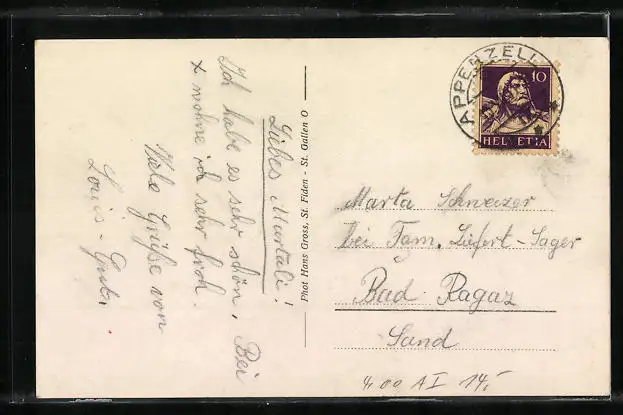 Liebes Martali!
Ich habe es sehr schön. Bei
x wohne ich sehr froh.
Viele Grüße von
Phot Hans Gross, St. Fiden - St. Gallen O
APPENZELL
10
HELVETIA
Marta Schweizer
bei Fam. Liefert-Sager
Bad Ragaz
Sand
400 AI 14.-